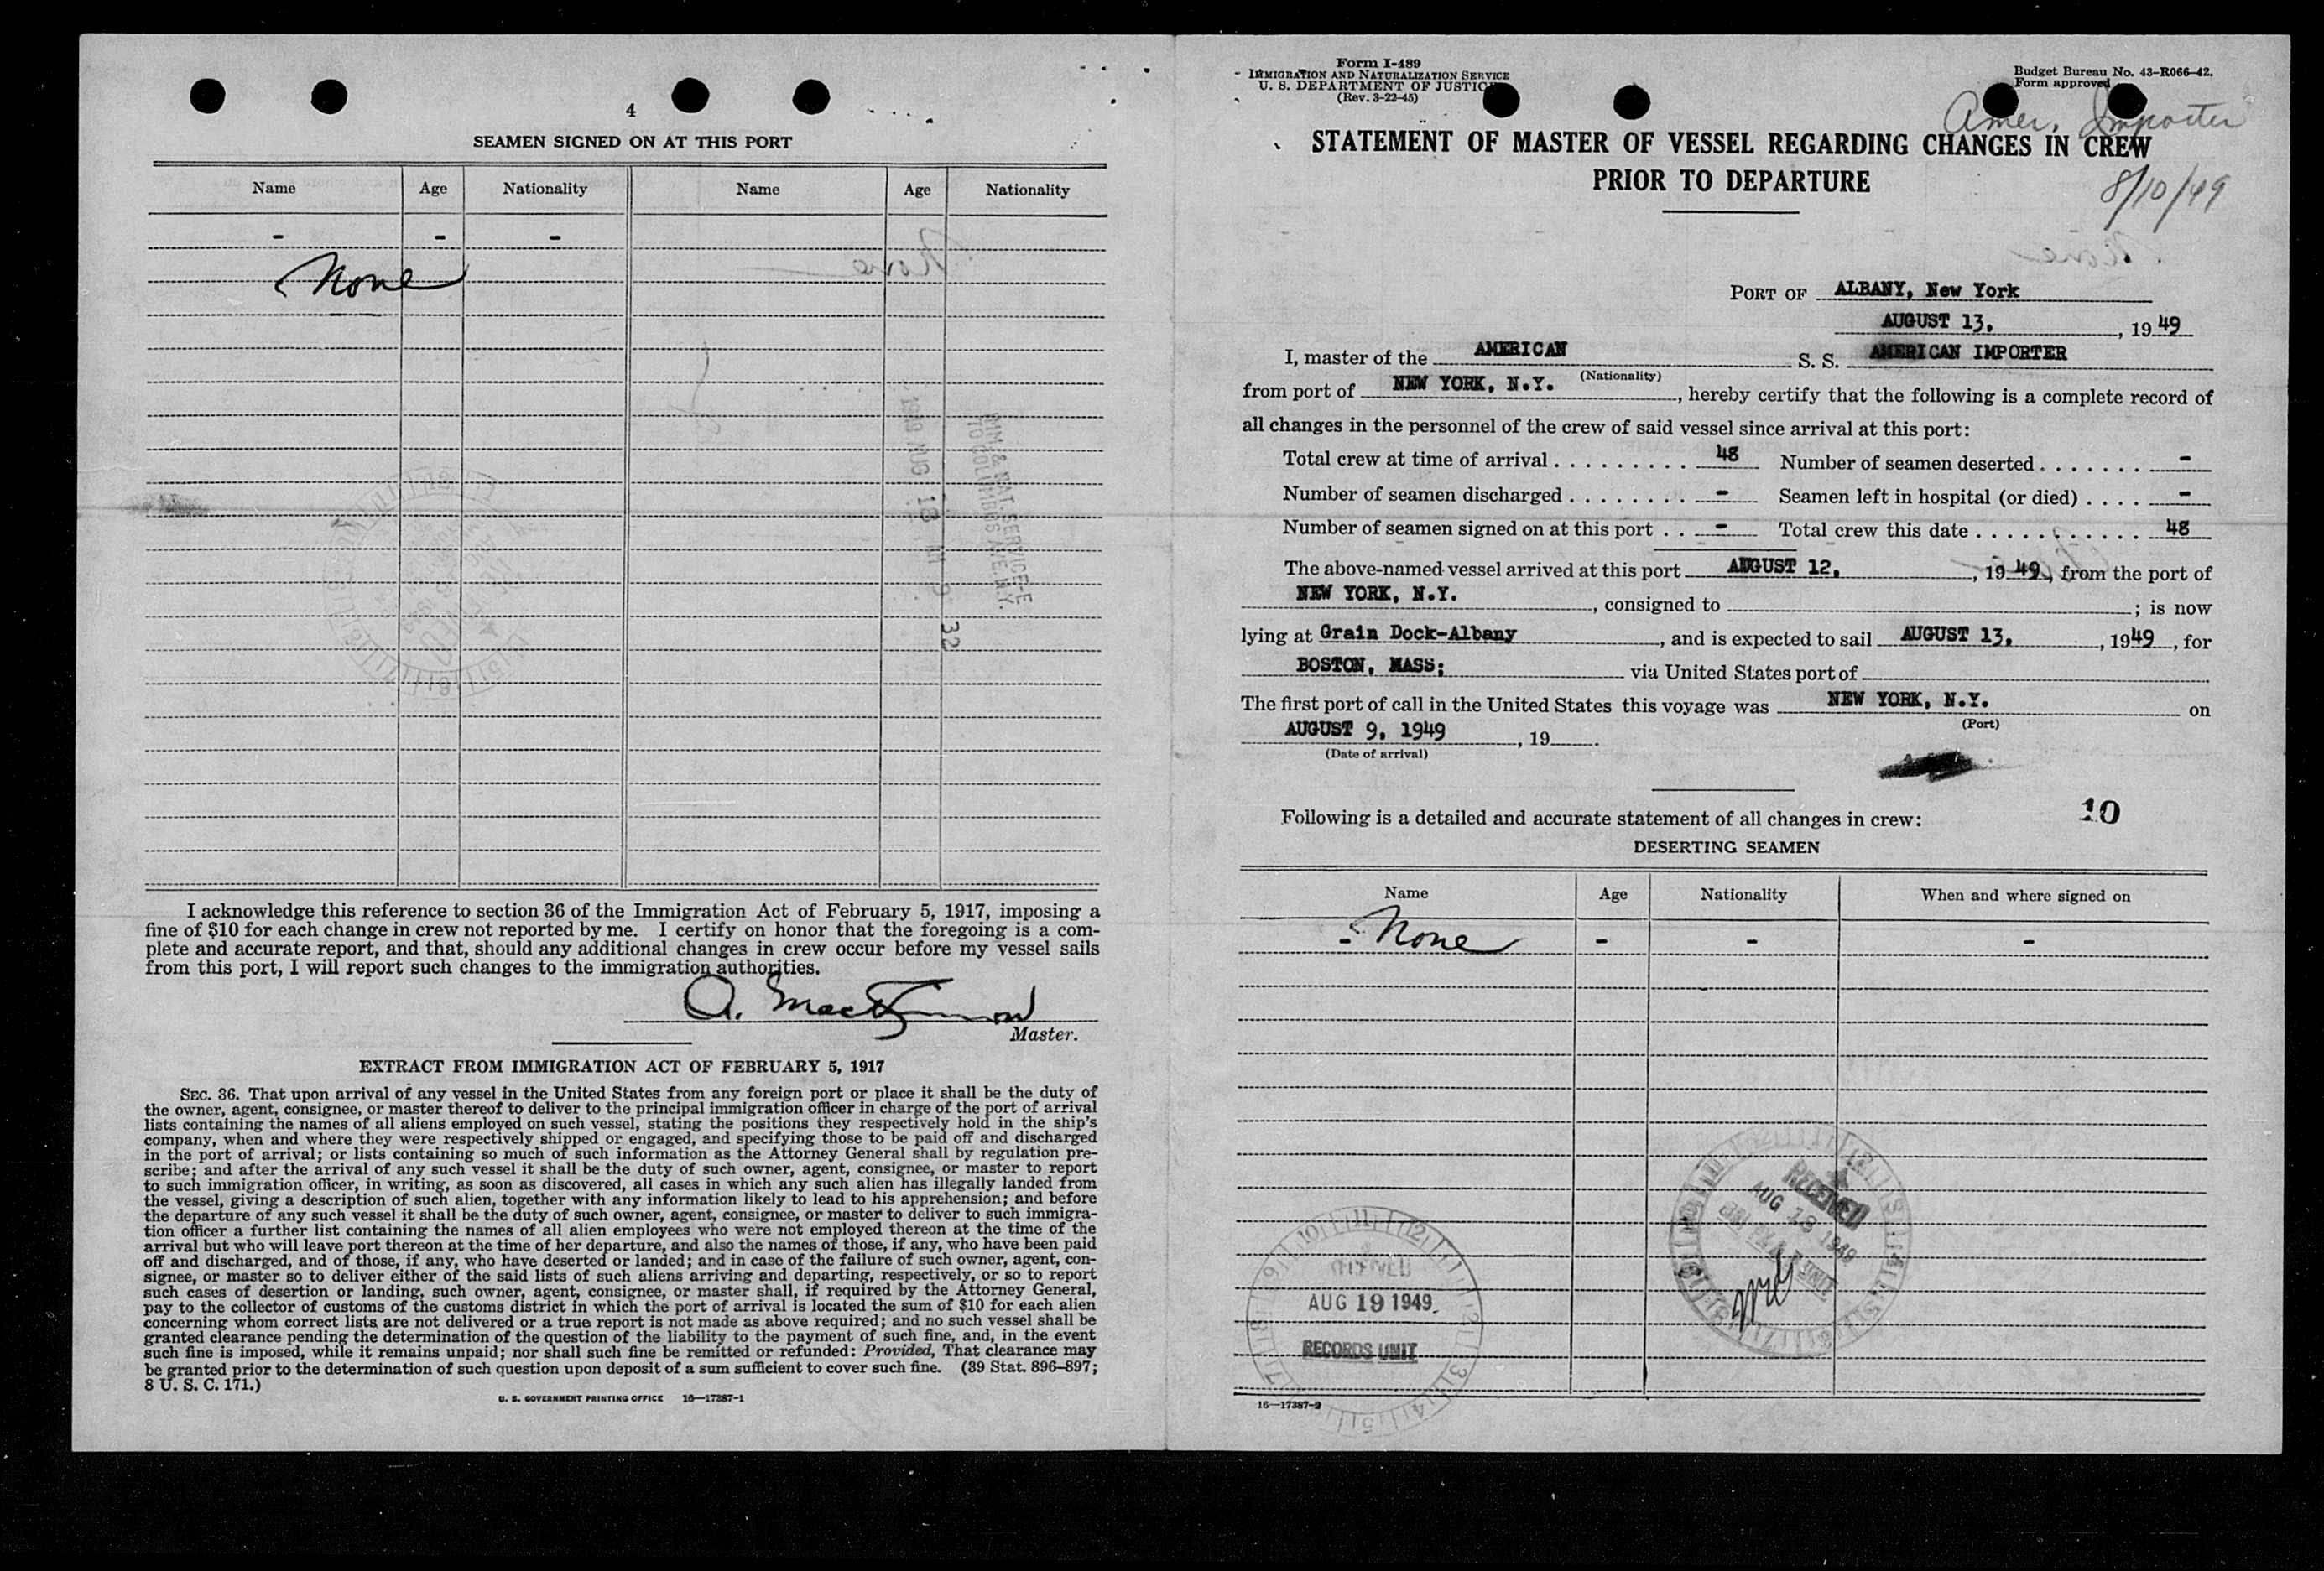 4
SEAMEN SIGNED ON AT THIS PORT
Name Age Nationality Name Age Nationality
- - -
None
I acknowledge this reference to section 36 of the Immigration Act of February 5, 1917, imposing a
fine of $10 for each change in crew not reported by me. I certify on honor that the foregoing is a com-
plete and accurate report, and that, should any additional changes in crew occur before my vessel sails
from this port, I will report such changes to the immigration authorities.
A.
Master.
EXTRACT FROM IMMIGRATION ACT OF FEBRUARY 5, 1917
SEC. 36. That upon arrival of any vessel in the United States from any foreign port or place it shall be the duty of
the owner, agent, consignee, or master thereof to deliver to the principal immigration officer in charge of the port of arrival
lists containing the names of all aliens employed on such vessel, stating the positions they respectively hold in the ship's
company, when and where they were respectively shipped or engaged, and specifying those to be paid off and discharged
in the port of arrival; or lists containing so much of such information as the Attorney General shall by regulation pre-
scribe; and after the arrival of any such vessel it shall be the duty of such owner, agent, consignee, or master to report
to such immigration officer, in writing, as soon as discovered, all cases in which any such alien has illegally landed from
the vessel, giving a description of such alien, together with any information likely to lead to his apprehension; and before
the departure of any such vessel it shall be the duty of such owner, agent, consignee, or master to deliver to such immigra-
tion officer a further list containing the names of all alien employees who were not employed thereon at the time of the
arrival but who will leave port thereon at the time of her departure, and also the names of those, if any, who have been paid
off and discharged, and of those, if any, who have deserted or landed; and in case of the failure of such owner, agent, con-
signee, or master so to deliver either of the said lists of such aliens arriving and departing, respectively, or so to report
such cases of desertion or landing, such owner, agent, consignee, or master shall, if required by the Attorney General,
pay to the collector of customs of the customs district in which the port of arrival is located the sum of $10 for each alien
concerning whom correct lists are not delivered or a true report is not made as above required; and no such vessel shall be
granted clearance pending the determination of the question of the liability to the payment of such fine, and, in the event
such fine is imposed, while it remains unpaid; nor shall such fine be remitted or refunded: Provided, That clearance may
be granted prior to the determination of such question upon deposit of a sum sufficient to cover such fine. (39 Stat. 896–897;
8 U. S. C. 171.)
U. S. GOVERNMENT PRINTING OFFICE 16—17387-1
IMM & NAT. SERVICE-E
70 COLUMBUS AVE. N.Y.
1949 AUG 18 9 32
Form I-489
IMMIGRATION AND NATURALIZATION SERVICE
U. S. DEPARTMENT OF JUSTICE
(Rev. 3-22-45)
Budget Bureau No. 43-R066-42.
Form approved
Amer. Importer
STATEMENT OF MASTER OF VESSEL REGARDING CHANGES IN CREW
PRIOR TO DEPARTURE
8/10/49
PORT OF ALBANY, New York
AUGUST 13, , 19 49
I, master of the AMERICAN S. S. AMERICAN IMPORTER
(Nationality)
from port of NEW YORK, N.Y. , hereby certify that the following is a complete record of
all changes in the personnel of the crew of said vessel since arrival at this port:
Total crew at time of arrival . . . . . . . . . 48 Number of seamen deserted . . . . . . . -
Number of seamen discharged . . . . . . . . - Seamen left in hospital (or died) . . . . -
Number of seamen signed on at this port . . - Total crew this date . . . . . . . . . . . 48
The above-named vessel arrived at this port AUGUST 12, , 19 49, from the port of
NEW YORK, N.Y. , consigned to ; is now
lying at Grain Dock-Albany , and is expected to sail AUGUST 13, , 1949 , for
BOSTON, MASS; via United States port of
The first port of call in the United States this voyage was NEW YORK, N.Y. on
(Port)
AUGUST 9, 1949 , 19 .
(Date of arrival)
Following is a detailed and accurate statement of all changes in crew: 10
DESERTING SEAMEN
Name Age Nationality When and where signed on
- None - - -
RECEIVED
AUG 18 1949
AUG 19 1949
RECORDS UNIT
16—17387-2